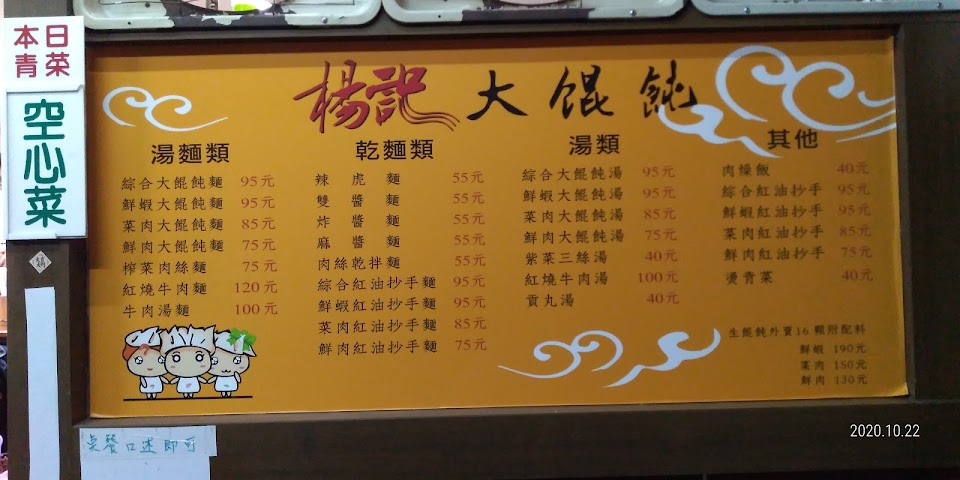 本日
青菜
空心菜
楊記大餛飩
湯麵類
綜合大餛飩麵 95元
鮮蝦大餛飩麵 95元
菜肉大餛飩麵 85元
鮮肉大餛飩麵 75元
榨菜肉絲麵 75元
紅燒牛肉麵 120元
牛肉湯麵 100元
乾麵類
辣虎麵 55元
雙醬麵 55元
炸醬麵 55元
麻醬麵 55元
肉絲乾拌麵 55元
綜合紅油抄手麵 95元
鮮蝦紅油抄手麵 95元
菜肉紅油抄手麵 85元
鮮肉紅油抄手麵 75元
湯類
綜合大餛飩湯 95元
鮮蝦大餛飩湯 95元
菜肉大餛飩湯 85元
鮮肉大餛飩湯 75元
紫菜三絲湯 40元
紅燒牛肉湯 100元
貢丸湯 40元
其他
肉燥飯 40元
綜合紅油抄手 95元
鮮蝦紅油抄手 95元
菜肉紅油抄手 85元
鮮肉紅油抄手 75元
燙青菜 40元
生餛飩外賣16顆附配料
鮮蝦 190元
菜肉 150元
鮮肉 130元
點餐口述即可
2020.10.22